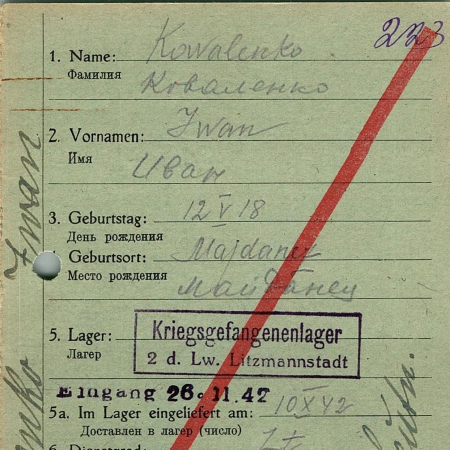 223
1. Name: Kowalenko
Фамилия Коваленко
2. Vornamen: Iwan
Имя Иван
3. Geburtstag: 12 V 18
День рождения
Geburtsort: Majdanez
Место рождения Майданец
5. Lager: Kriegsgefangenenlager
Лагер 2 d. Lw. Litzmannstadt
Eingang 26.11.42
5a. Im Lager eingeliefert am: 10 X 42
Доставлен в лагер (число)
6. Dienstgrad:
Iwan